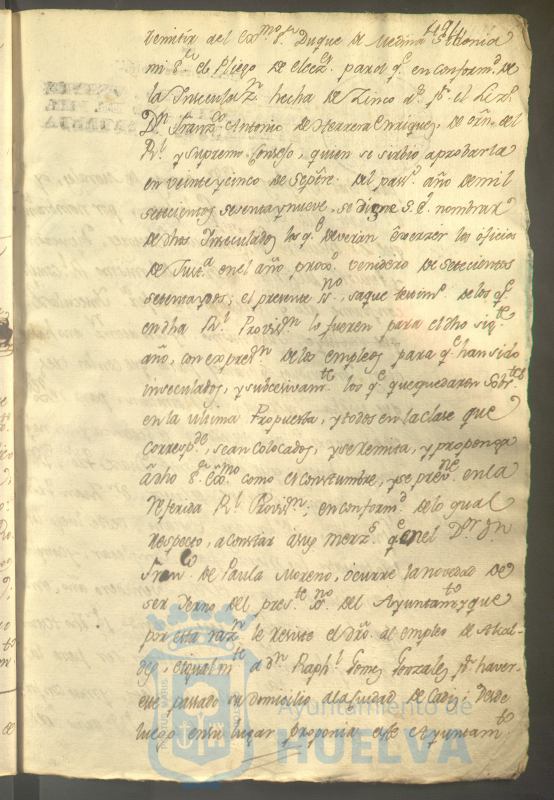 remitir al Exmo. Sr. Duque de Medina Sidonia
mi Sr. el Pliego de elecn. para el qe. en conformd. de
la Inseculazn. hecha de Zinco as. pr. el Lizdo.
Dn. Franzco. Antonio de Herrera Enriquez, de orn. del
Rl. y Supremo Consejo, quien se sirbio aprobarla
en veinte y cinco de Sepbre. del pasdo. año de mil
setecientos sesenta y nueve, se digne S. E. nombrar
de dhos Inseculados los qe. deveran exerzer los oficios
de Justa. en el año proxo. venidero de setecientos
setenta y dos; el presente no., saque tesimo. de los qe.
en dha Rl. Provisn. lo fueren para el dho sigte.
año, con expresn. de los empleos para qe. han sido
inseculados, y subcesivamte. los qe. que quedaren sobrtes.
en la ultima Propuesta, y todos en la clase que
correspde. sean colocados, y se remita, y proponga
a dho Sr. Exmo. como es constumbre, y se previe. en la
referida Rl. Provisn.; en conformd. de lo qual
respecto, a constar a sus merzs. qe. en el Dr. Dn.
Franco. de Paula Moreno, ocurre la novedad de
ser Yerno del preste. no. del Ayuntamto. y que
por esta razn. le resiste el dro. al empleo de Alcal-
de, e igualmte. a Dn. Raphl. Gomez Gonzalez pr. haver-
se pasado su domicilio a la ciudad de Cadiz; desde
luego en su lugar proponia este Ayuntamto.
Ayuntamiento de
HUELVA